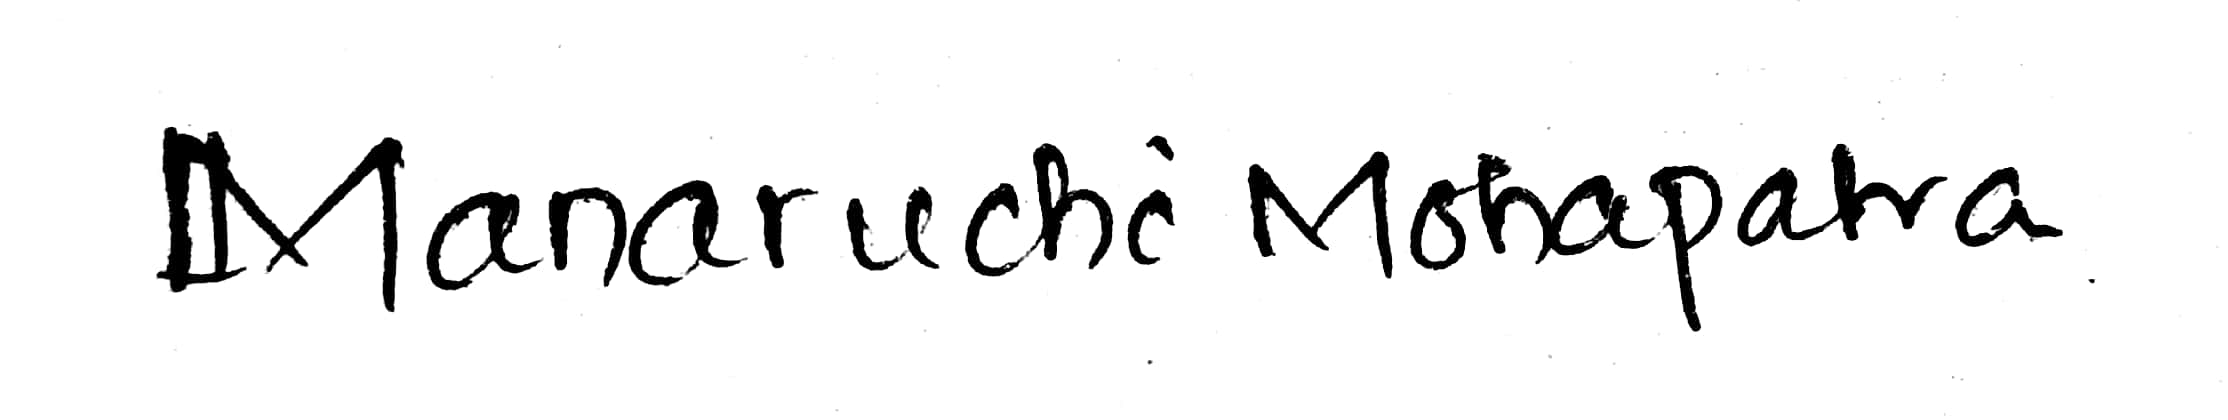 Manaruchi Mohapatra